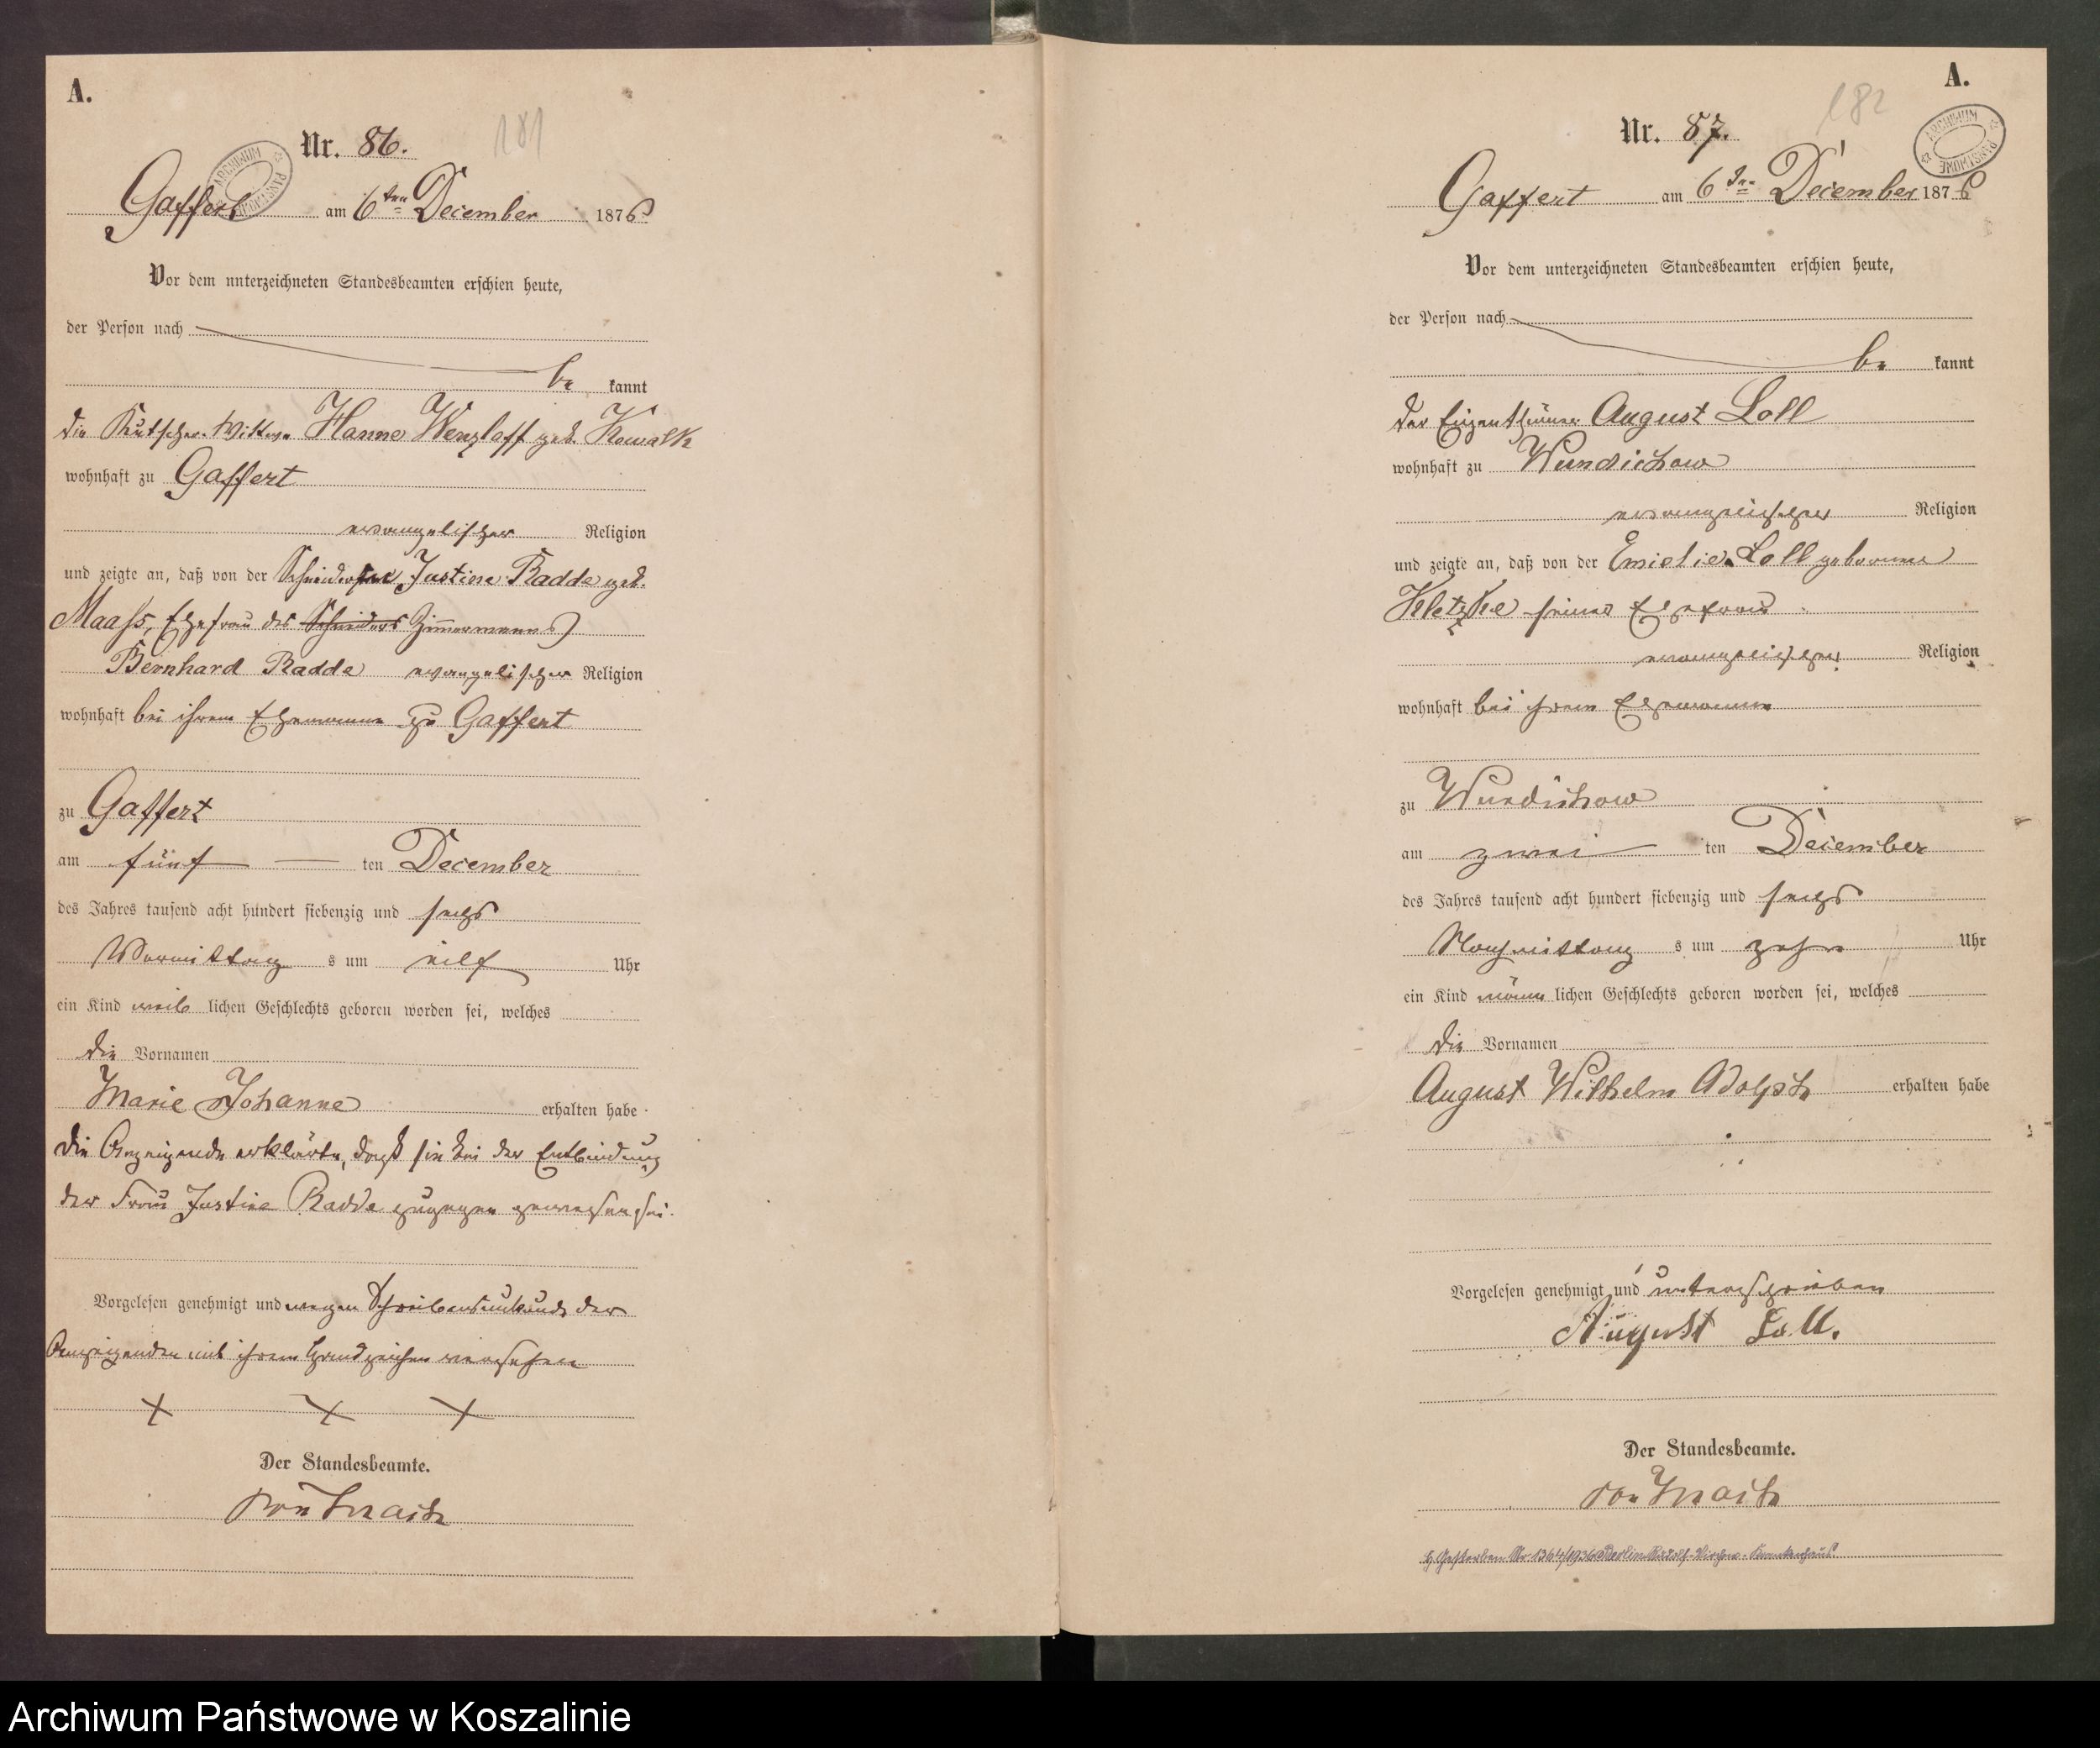 A.
181
Nr. 86.
Gaffert am 6ten December 1876
Vor dem unterzeichneten Standesbeamten erschien heute,
der Person nach
be kannt
die Kutscher-Wittwe Hanne Wenzlaff geb. Kowalk
wohnhaft zu Gaffert
evangelischer Religion
und zeigte an, daß von der Justine Radde geb.
Maaß, Ehefrau des Schneiders Zimmermanns)
Bernhard Radde evangelischer Religion
wohnhaft bei ihrem Ehemanne zu Gaffert
zu Gaffert
am fünf ten December
des Jahres tausend acht hundert siebenzig und sechs
Vormittag s um eilf Uhr
ein Kind weib lichen Geschlechts geboren worden sei, welches
die Vornamen
Marie Johanne erhalten habe.
Die Anzeigende erklärte, daß sie bei der Entbindung
der Frau Justine Radde zugegen gewesen sei.
Vorgelesen genehmigt und wegen Schreibensunkunde der
Anzeigenden mit ihrem Handzeichen versehen
+ + +
Der Standesbeamte.
ARCHIWUM PAŃSTWOWE
A.
182
Nr. 87.
Gaffert am 6ten December 1876
Vor dem unterzeichneten Standesbeamten erschien heute,
der Person nach
be kannt
der Eigenthümer August Loll
wohnhaft zu Wundichow
evangelischer Religion
und zeigte an, daß von der Emielie Loll geborenen
Kletzke seiner Ehefrau
evangelischer Religion
wohnhaft bei ihrem Ehemanne
zu Wundichow
am zwei ten December
des Jahres tausend acht hundert siebenzig und sechs
Nachmittag s um zehn Uhr
ein Kind männ lichen Geschlechts geboren worden sei, welches
die Vornamen
August Wilhelm Adolph erhalten habe
Vorgelesen genehmigt und unterschrieben
August Loll.
Der Standesbeamte.
Gestorben Nr. 1364/1936 Berlin Rudolf-Virchow-Krankenhaus.
ARCHIWUM PAŃSTWOWE
Archiwum Państwowe w Koszalinie